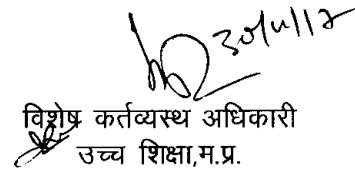 30/11/17
विशेष कर्तव्यस्थ अधिकारी
उच्च शिक्षा,म.प्र.